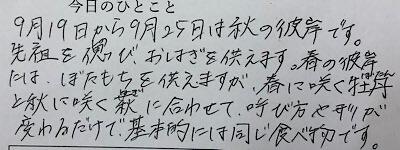 今日のひとこと
9月19日から9月25日は秋の彼岸です。
先祖を偲び、おはぎを供えます。春の彼岸
には、ぼたもちを供えますが、春に咲く牡丹
と秋に咲く萩に合わせて、呼び方や形が
変わるだけで、基本的には同じ食べ物です。